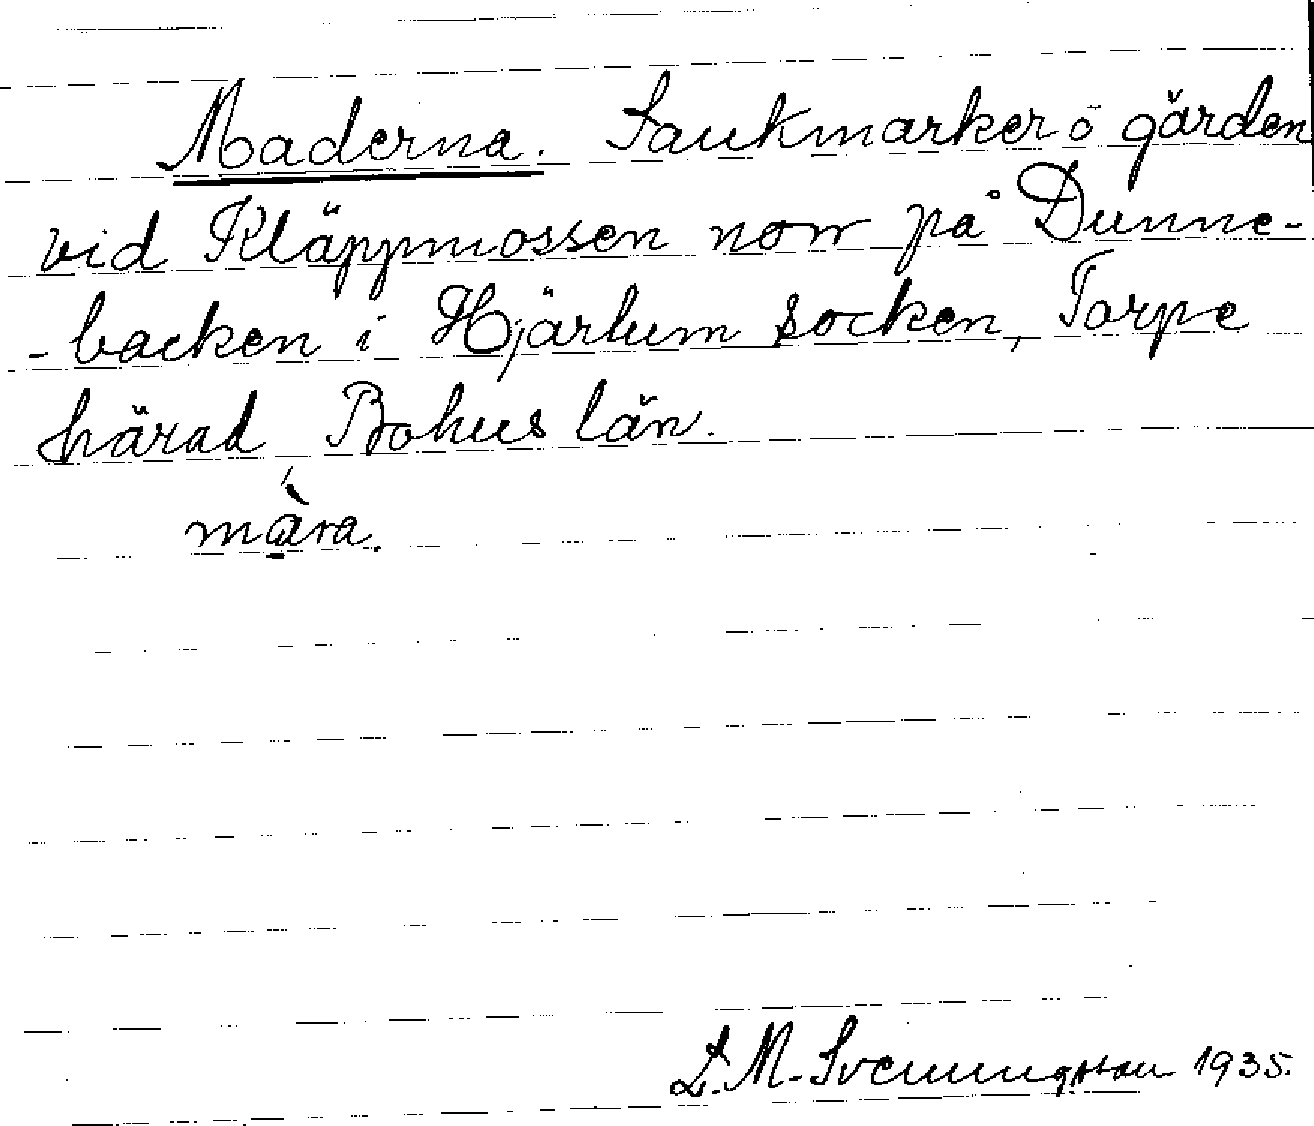 Maderna. Sankmarker ö gärden
vid Kläppmossen norr på Dunne-
-backen i Hjärtum socken, Torpe
härad Bohus län.
mà̱ra.
D. M. Svenningsson 1935.